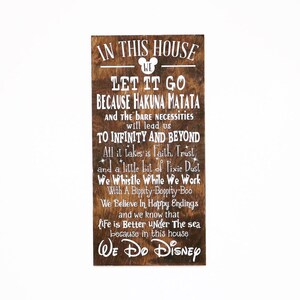 IN THIS HOUSE
WE
LET IT GO
BECAUSE HAKUNA MATATA
and the bare necessities
will lead us
TO INFINITY AND BEYOND
All it takes is Faith, Trust,
and a little bit of Pixie Dust
We Whistle While We Work
With A Bippity-Boppity-Boo
We Believe In Happy Endings
and we know that
Life is Better Under The sea
because in this house
We Do Disney